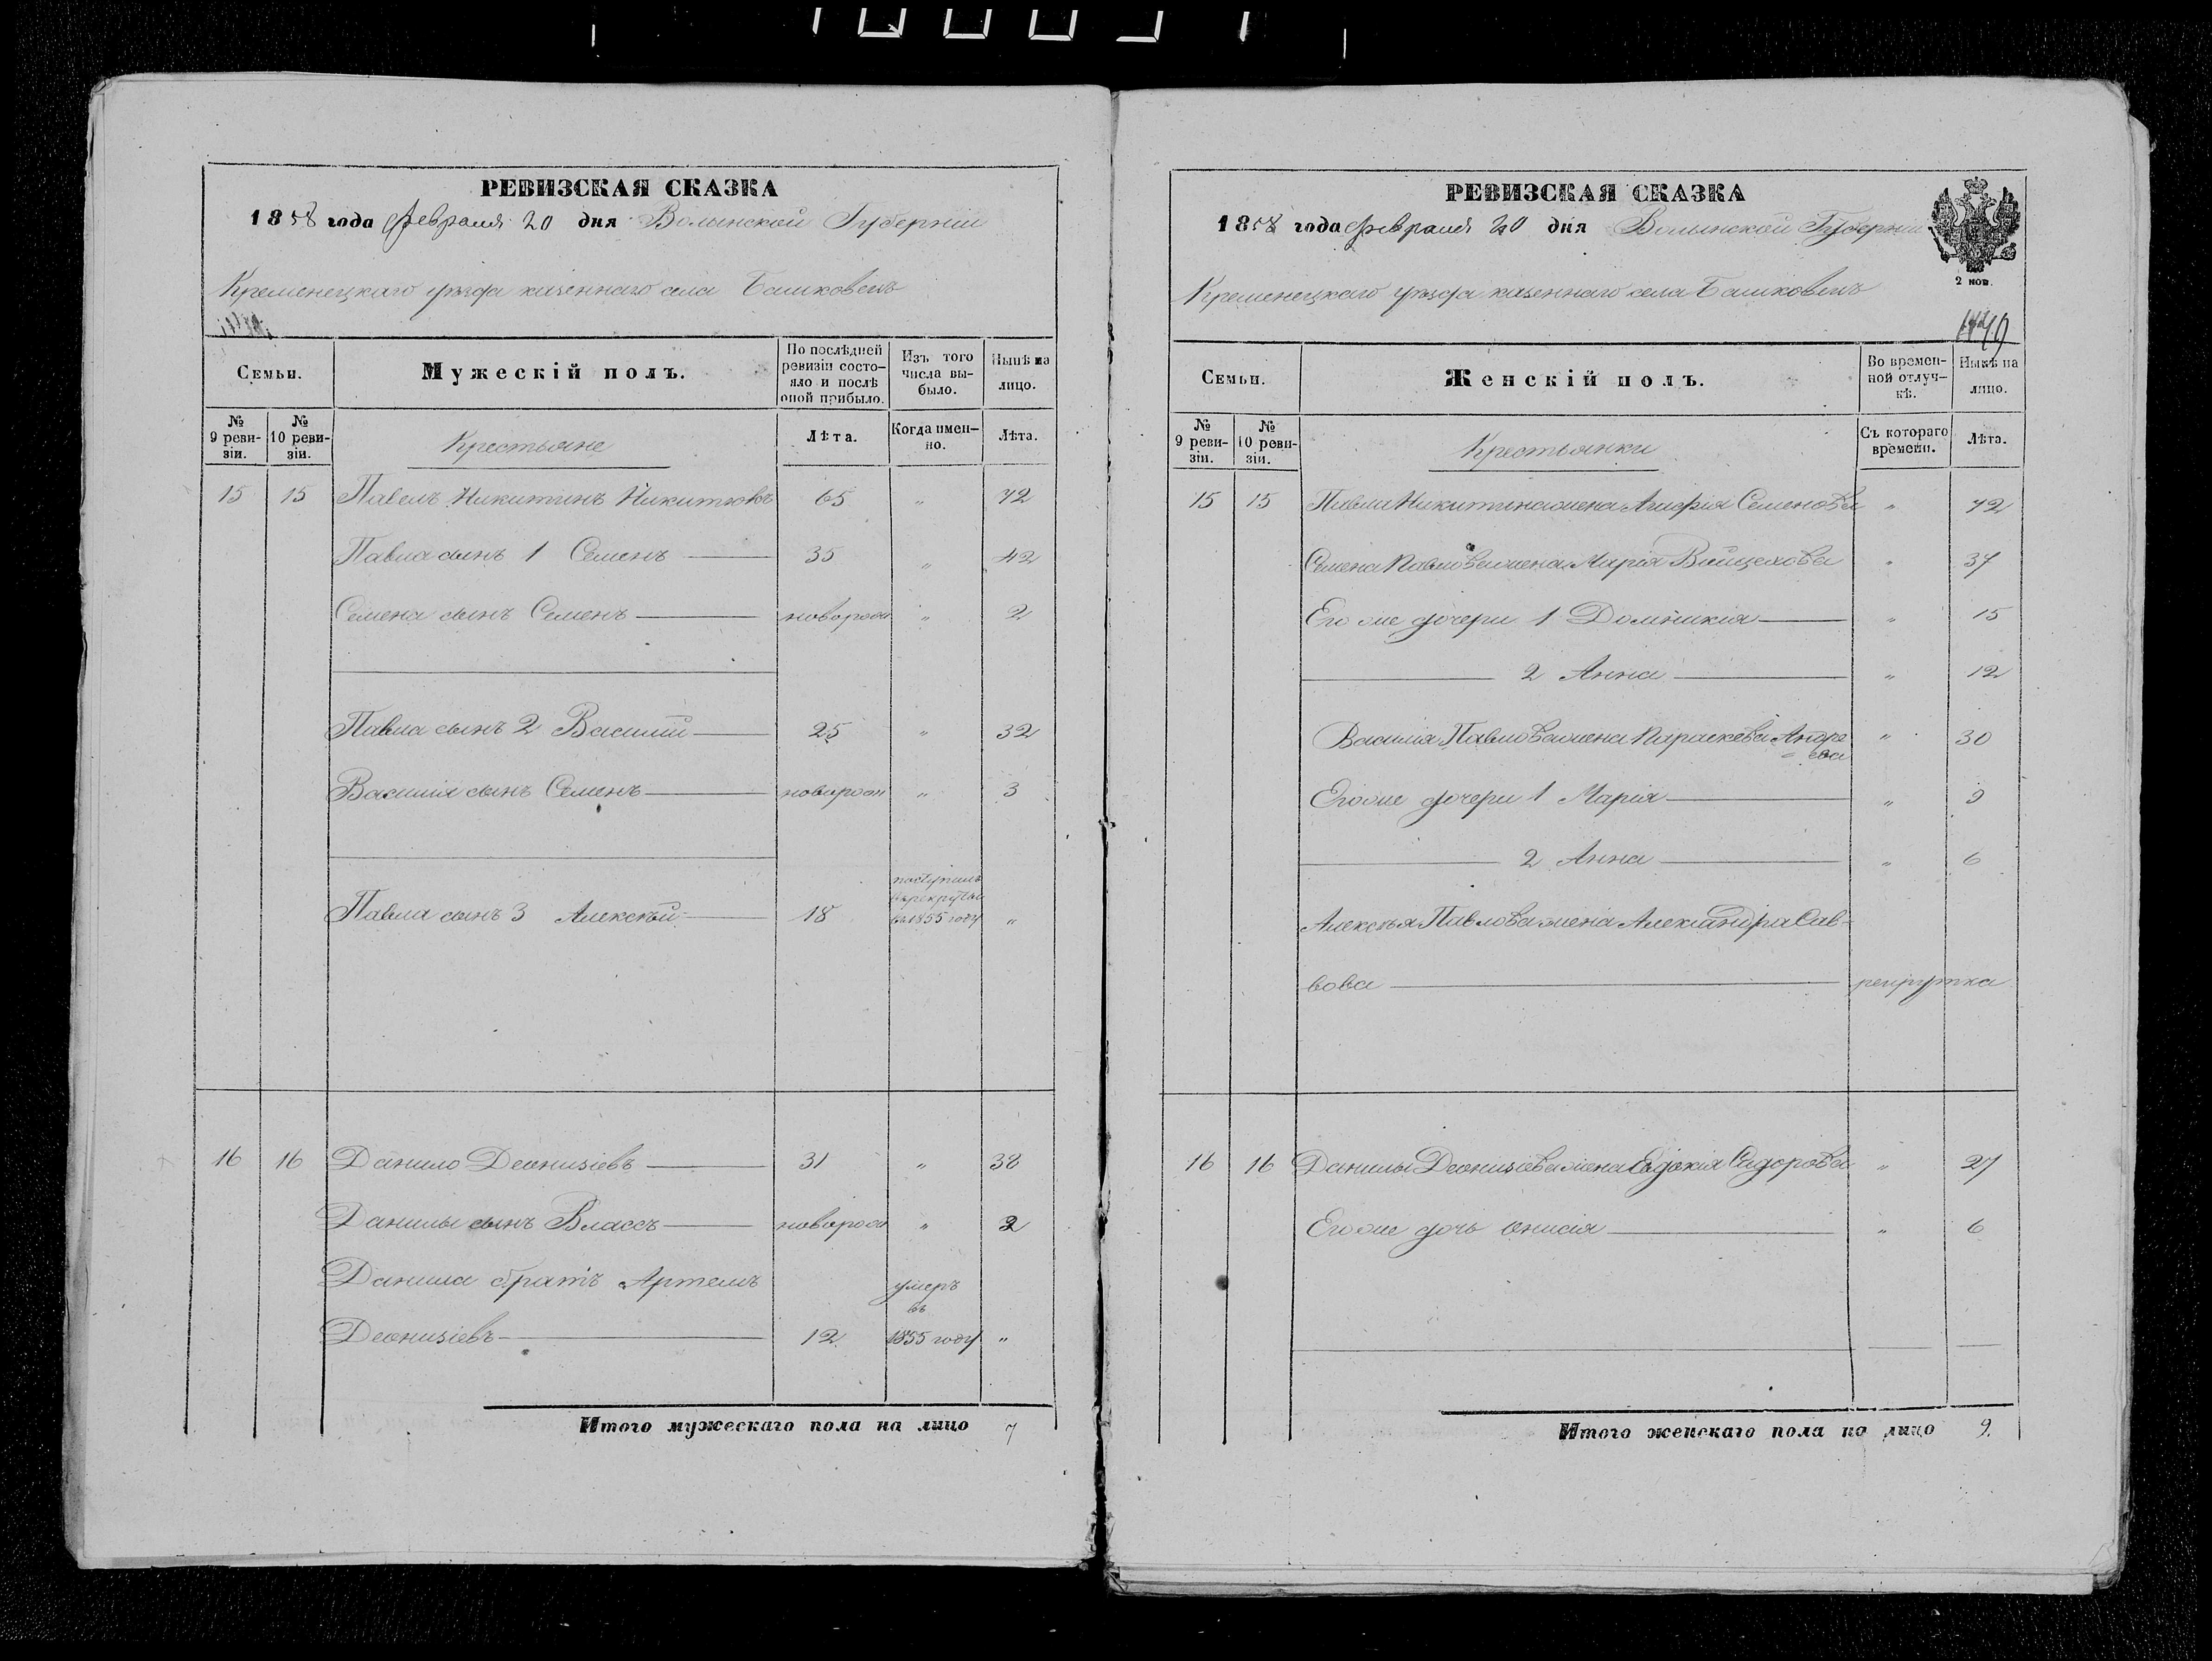 РЕВИЗСКАЯ СКАЗКА
1858 года февраля 20 дня Волынской Губерніи
Кременецкаго уѣзда казеннаго села Башковецъ
Семьи.
Мужескій полъ.
По послѣдней
ревизіи состо-
яло и послѣ
оной прибыло.
Изъ того
числа вы-
было.
Нынѣ на
лицо.
№
9 реви-
зіи.
№
10 реви-
зіи.
Крестьяне
Лѣта.
Когда имен-
но.
Лѣта.
15 15 Павелъ Никитинъ Никитюкъ 65 " 72
Павла сынъ 1 Семенъ 35 " 42
Семена сынъ Семенъ новорожд " 2
Павла сынъ 2 Василій 25 " 32
Василія сынъ Семенъ новорожд " 3
поступилъ
въ рекруты
Павла сынъ 3 Алексѣй 18 въ 1855 году "
16 16 Данило Деонизіевъ 31 " 38
Данилы сынъ Власъ новорожд " 2
Данила братъ Артемъ умеръ
въ
Деонизіевъ 12 1855 году "
Итого мужескаго пола на лицо 7
РЕВИЗСКАЯ СКАЗКА
1858 года февраля 20 дня Волынской Губерніи
Кременецкаго уѣзда казеннаго села Башковецъ
2 коп.
Семьи.
Женскій полъ.
Во времен-
ной отлуч-
кѣ.
Нынѣ на
лицо.
№
9 реви-
зіи.
№
10 реви-
зіи.
Крестьянки
Съ котораго
времени.
Лѣта.
15 15 Павла Никитина жена Агафія Семенова " 72
Семена Павлова жена Марія Войцехова " 37
Его же дочери 1 Домникія " 15
2 Анна " 12
Василія Павлова жена Параскева Андре " 30
ева
Его же дочери 1 Марія " 9
2 Анна " 6
Алексѣя Павлова жена Александра Сав-
вова рекрутка
16 16 Данилы Деонизіева жена Евдокія Сидорова " 27
Его же дочь Онисія " 6
Итого женскаго пола на лицо 9.